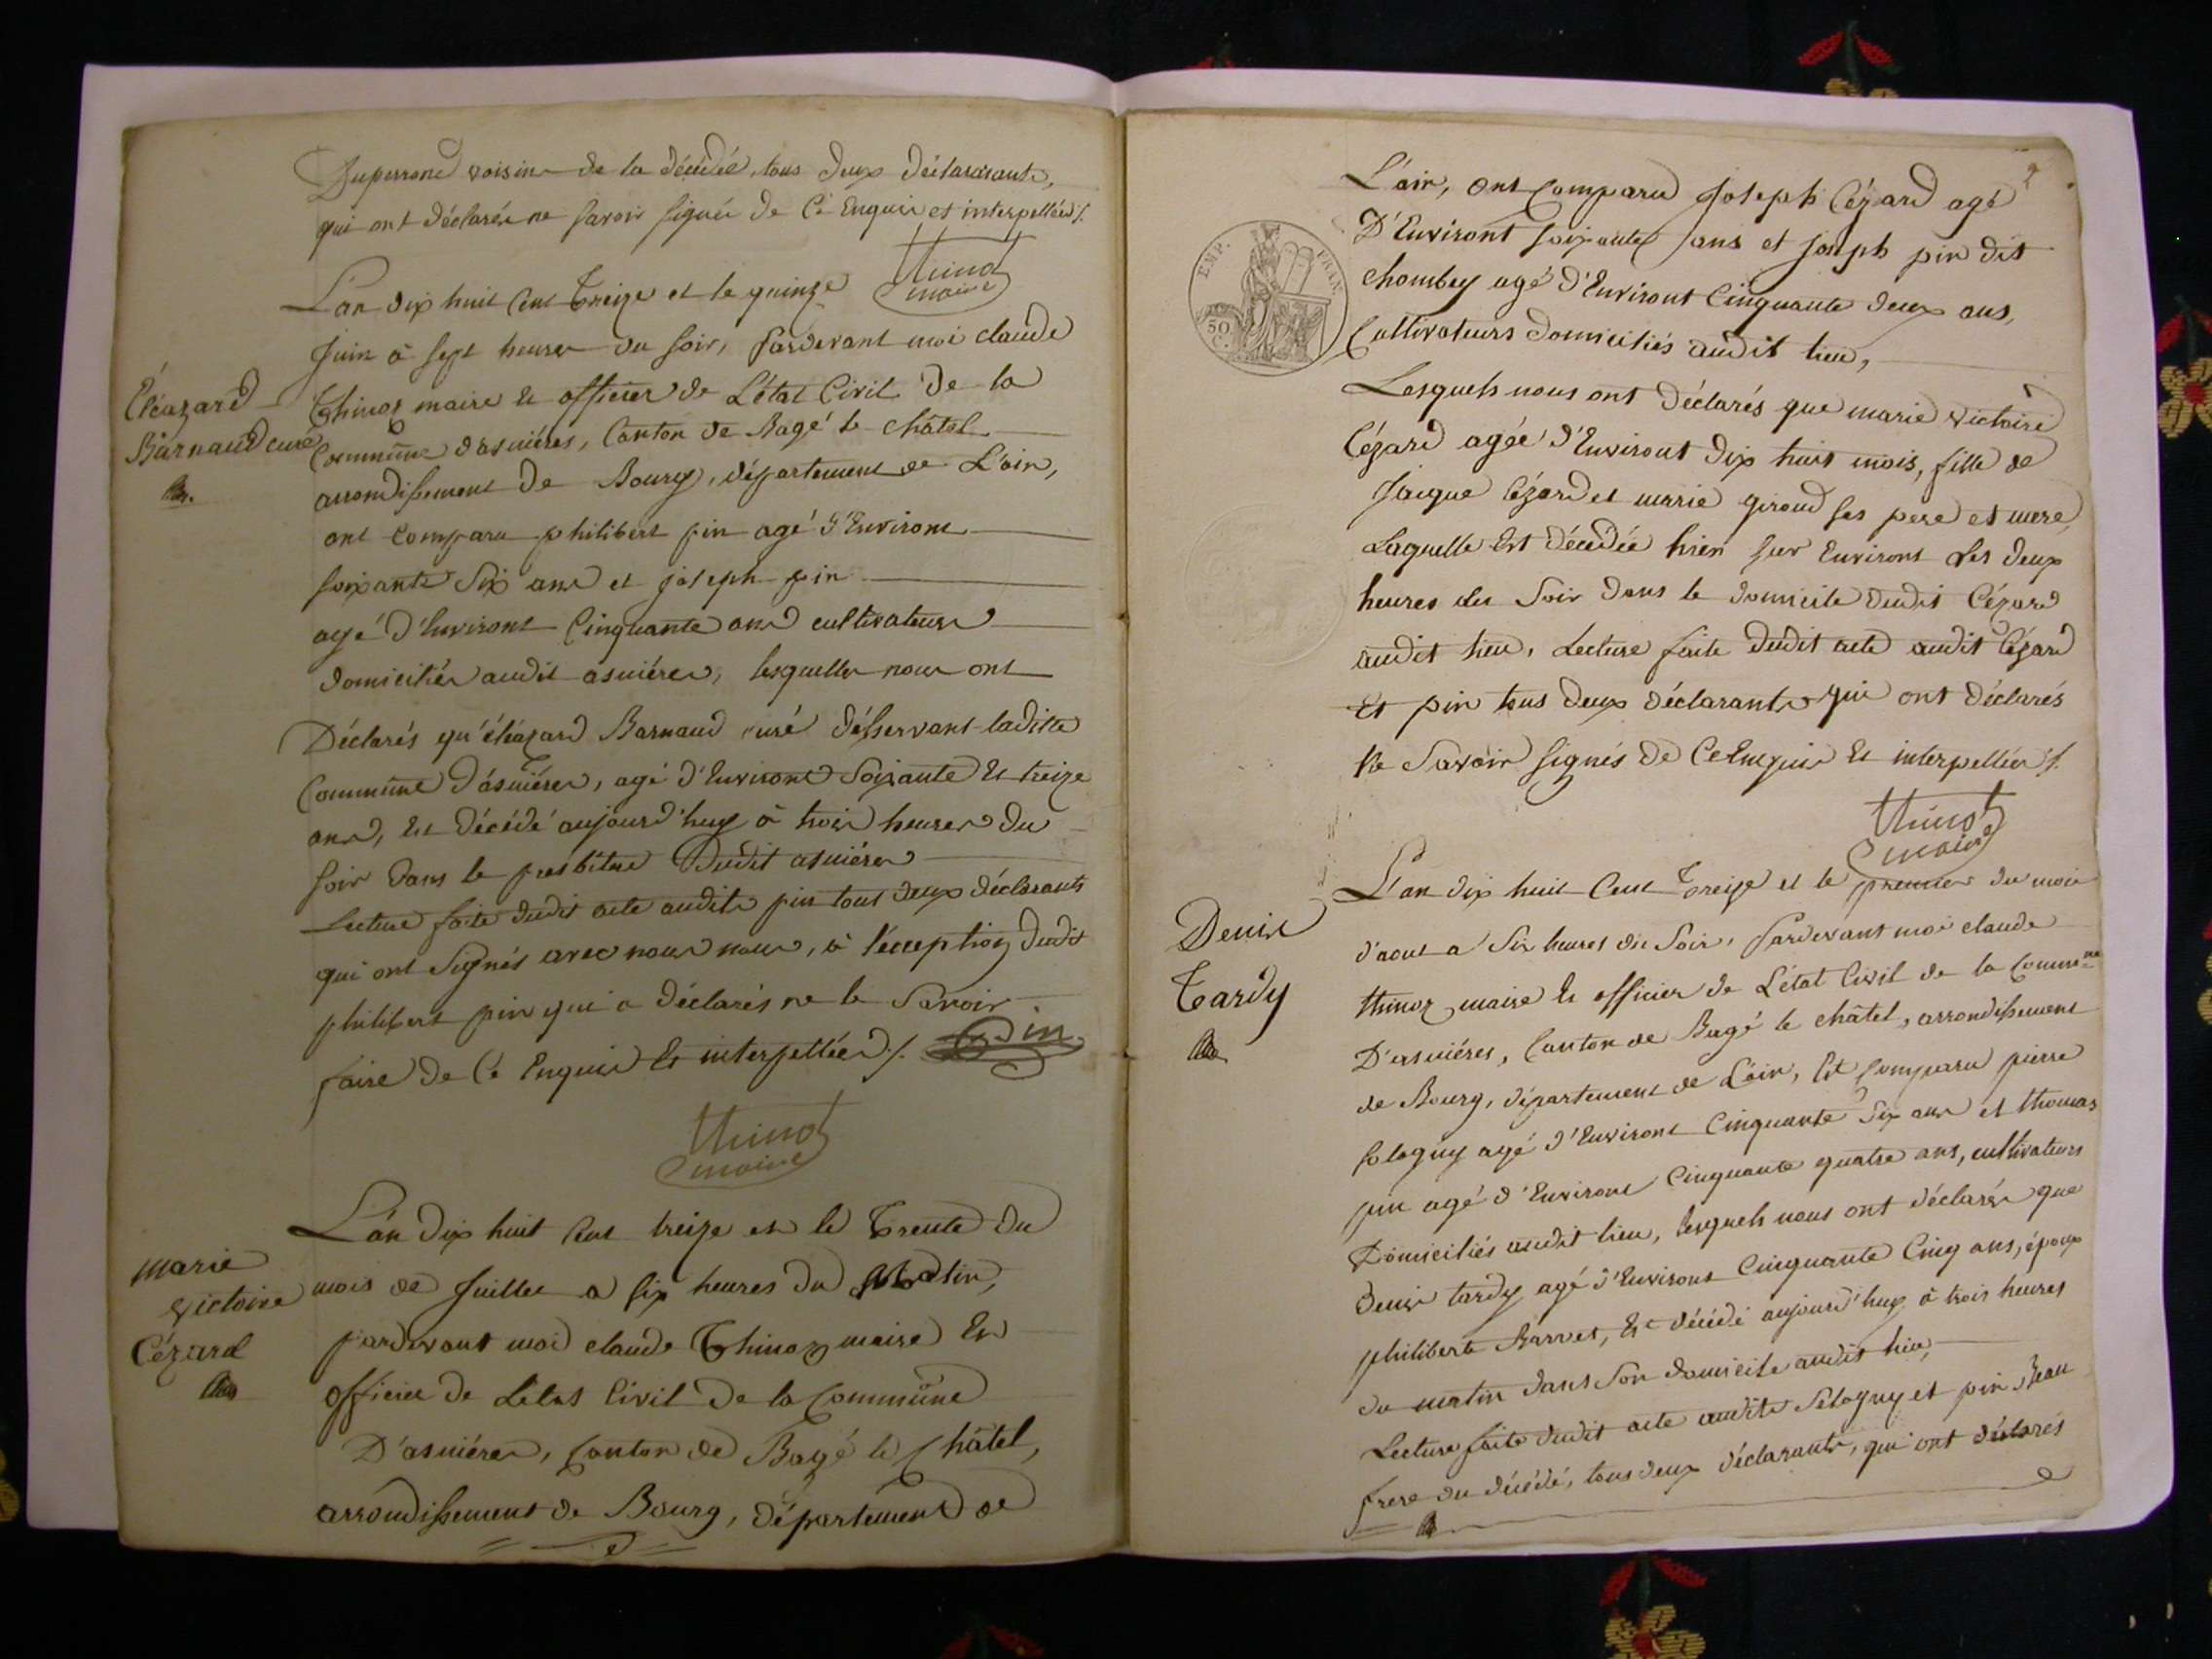 Duperrond voisin de la décédée, tous deux déclarants,
qui ont déclarés ne savoir signée de Ce Enquis et interpellés ./.
thinoz
maire
L'an dix huit Cent Treize et le quinze
Juin à sept heures du soir, pardevant moi claude
Eléazard
Barnaud curé
Thinoz maire et officier de L'état Civil de la
Commune d'asniéres, Canton de Bagé le châtel
arrondissement de Bourg, département de L'ain,
ont comparu philibert pin agé d'Environt
soixante Six ans et joseph pin
agé d'Environt Cinquante ans cultivateurs
domiciliés audit asniéres, lesquelles nous ont
Déclarés qu'éléazard Barnaud curé désservant laditte
Commune d'asniéres, agé d'Environt Soixante Et treize
ans, Est décédé aujourd'huy à trois heures du
soir dans le presbitere dudit asniéres
Lecture faite dudit acte audits pin tous deux déclarants
qui ont Signés avec nous nous, à l'éception dudit
philibert pin qui a déclarés ne le Savoir
faire de Ce Enquis Et interpellés ./. Pin
thinoz
maire
L'an dix huit Cent treize et le Trente du
marie
victoire
Cézard
mois de Juillet a six heures du Matin,
pardevant moi claude Thinoz maire Et
officier de L'état Civil de la Commune
D'asniéres, Canton de Bagé le Châtel,
arrondissement de Bourg, département de
L'ain, ont Comparu Joseph Cézard agé
D'Environt soixante ans et joseph pin dit
chombey agé d'Environt Cinquante deux ans,
Cultivateurs domiciliés audit lieu,
EMP. FRAN.
50
C.
Lesquels nous ont déclarés que marie victoire
Cézard agée d'Environt dix huit mois, fille de
Jaique Cézard et marie giroud ses pere et mere,
Laquelle Est décédée hier sur Environt les deux
heures du Soir dans le domicile dudit Cézard
audit lieu, Lecture faite dudit acte audit Cézard
Et pin tous deux déclarants qui ont déclarés
Ne Savoir signés de Ce Enquis Et interpellés ./.
thinoz
maire
L'an dix huit Cent Treize et le premier du mois
Denis
Tardy
d'aout a Six heures du Soir, pardevant moi claude
thinoz maire Et officier de L'état Civil de la Commune
D'asniéres, Canton de Bagé le châtel, arrondissement
de Bourg, département de L'ain, Est Comparu pierre
Sologny agé d'Environt Cinquante Six ans et thomas
pin agé d'Environt Cinquante quatre ans, cultivateurs
Domiciliés audit lieu, lesquels nous ont déclarés que
denis tardy agé d'Environt Cinquante Cinq ans, époux
philiberte Barvet, Est décédé aujourd'huy à trois heures
du matin dans Son domicile audit lieu,
Lecture faite dudit acte audits Sologny et pin Beau
frere du décédé, tous deux déclarants, qui ont déclarés